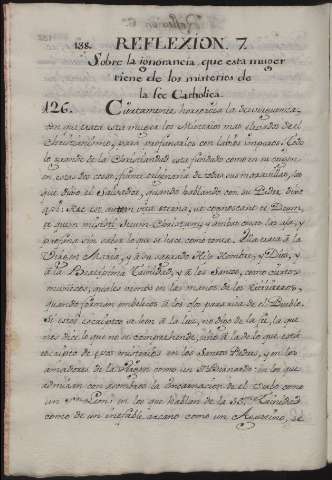 138. REFLEXION. 7.
Sobre la ignorancia, que esta muger
tiene de los misterios de
la feé Catholica.
126. Ciertamente horroriza la desverguenza,
con que trata esta muger los Misterios mas elevados de el
Christianismo, para profanarlos con labios impuros. Todo
lo grande de la Christiandad esta fundado como en su origen
en estas dos cosas, fuente originaria de todas sus maravillas, las
que dixo el Salvador, quando hablando con su Padre dixo
assi: Hæc est autem vita æterna, ut cognoscant te Deum,
et quem misisti Jesum Christum; y ambas cosas las aja, y
profana sin saber lo que se hace, como necia. Ella saca á la
Virgen Maria, y á su sagrado Hijo Hombre, y Dios, y
á la Beatissima Trinidad, y á los Santos, como quatro
muñecos, quales vemos en las manos de los Titiriteros,
quando forman embelecos á los ojos para risa de el Pueblo.
Si estos escriptos salen á la luz, no digo de la feé, la que
nos dice lo que no se comprehende, sino á la de lo que está
escripto de estos misterios en los Santos Padres, y en los
amadores de la Virgen como un Sn. Bernardo: en los que
admiran con asombro la Encarnacion de el Verbo como
un Sn. Leon: en los que hablan de la SSma. Trinidad
como de un inefable arcano como un Agustino, se